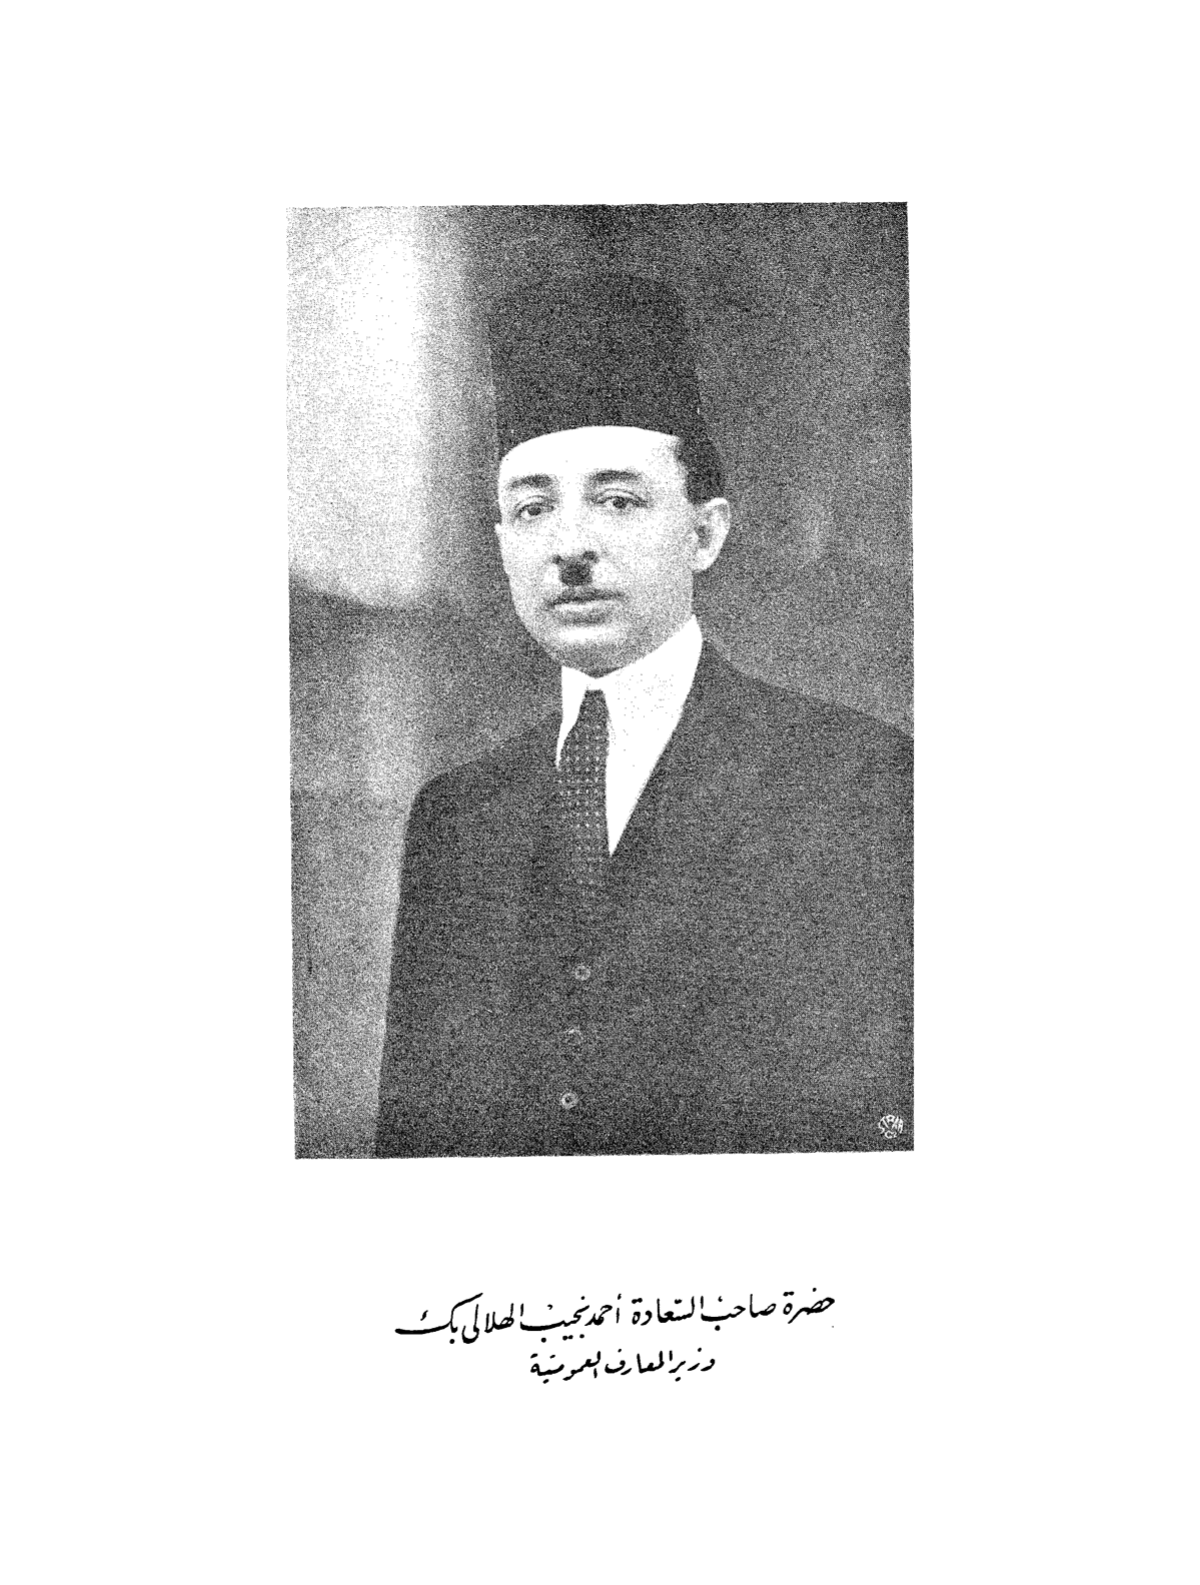 حضرة صاحب السعادة أحمد نجيب الهلالى بك
وزير المعارف العمومية